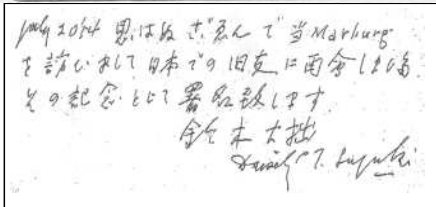 July 20th 思はぬごゑんで当Marburg
を訪ひまして日本での旧友に面会しました
その記念として署名致します
鈴木大拙
Daisetz T. Suzuki